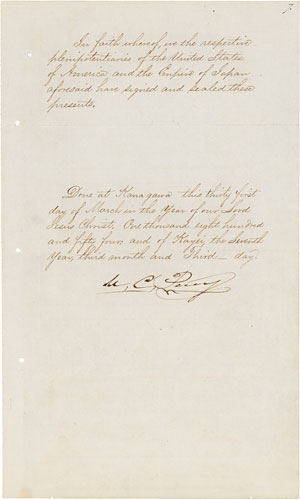 7.
In faith whereof, we the respective
plenipotentiaries of the United States
of America and the Empire of Japan
aforesaid have signed and sealed these
presents.
Done at Kanagawa this thirty first
day of March in the Year of our Lord
Jesus Christ. One thousand eight hundred
and fifty four and of Kayei the seventh
Year, third month and Third _ day.
M. C. Perry